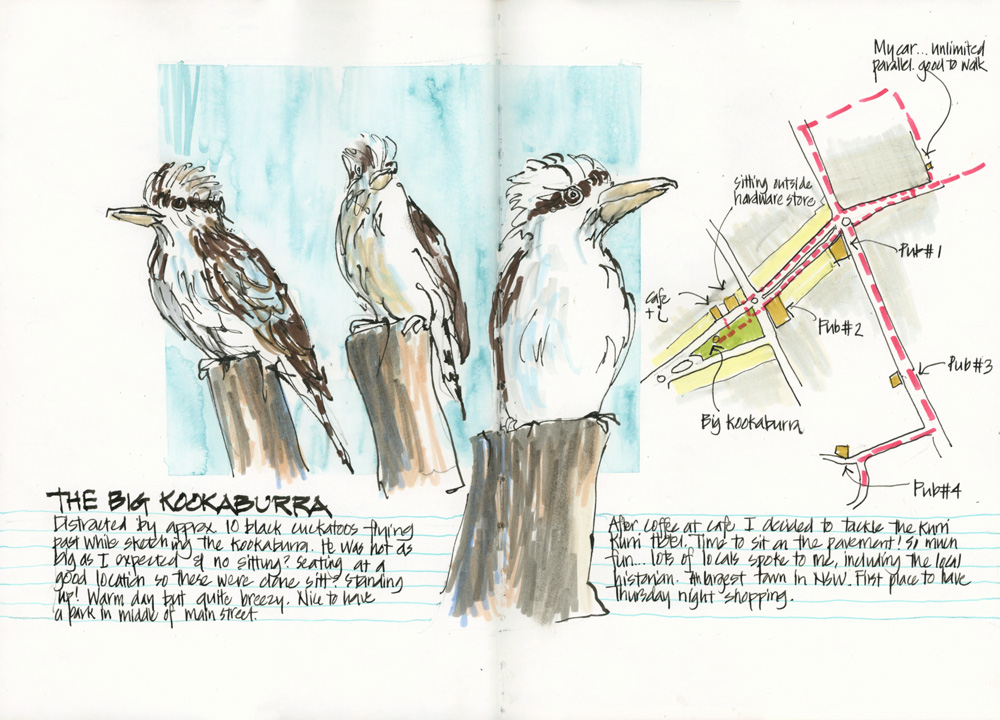 My car... unlimited
parallel. good to walk
sitting outside
hardware store
cafe
Pub #1
Pub #2
Pub #3
Pub #4
Big Kookaburra
THE BIG KOOKABURRA
Distracted by approx. 10 black cuckatoos flying
past while sketching the Kookaburra. He was not as
big as I expected & no sitting? Seating at a
good location so these were done sitt? standing
up! Warm day but quite breezy. Nice to have
a park in middle of main street.
After coffee at cafe I decided to tackle the Kurri
Kurri Hotel. Time to sit on the pavement! So much
fun... lots of locals spoke to me, including the local
historian. largest town in NSW. First place to have
Thursday night shopping.